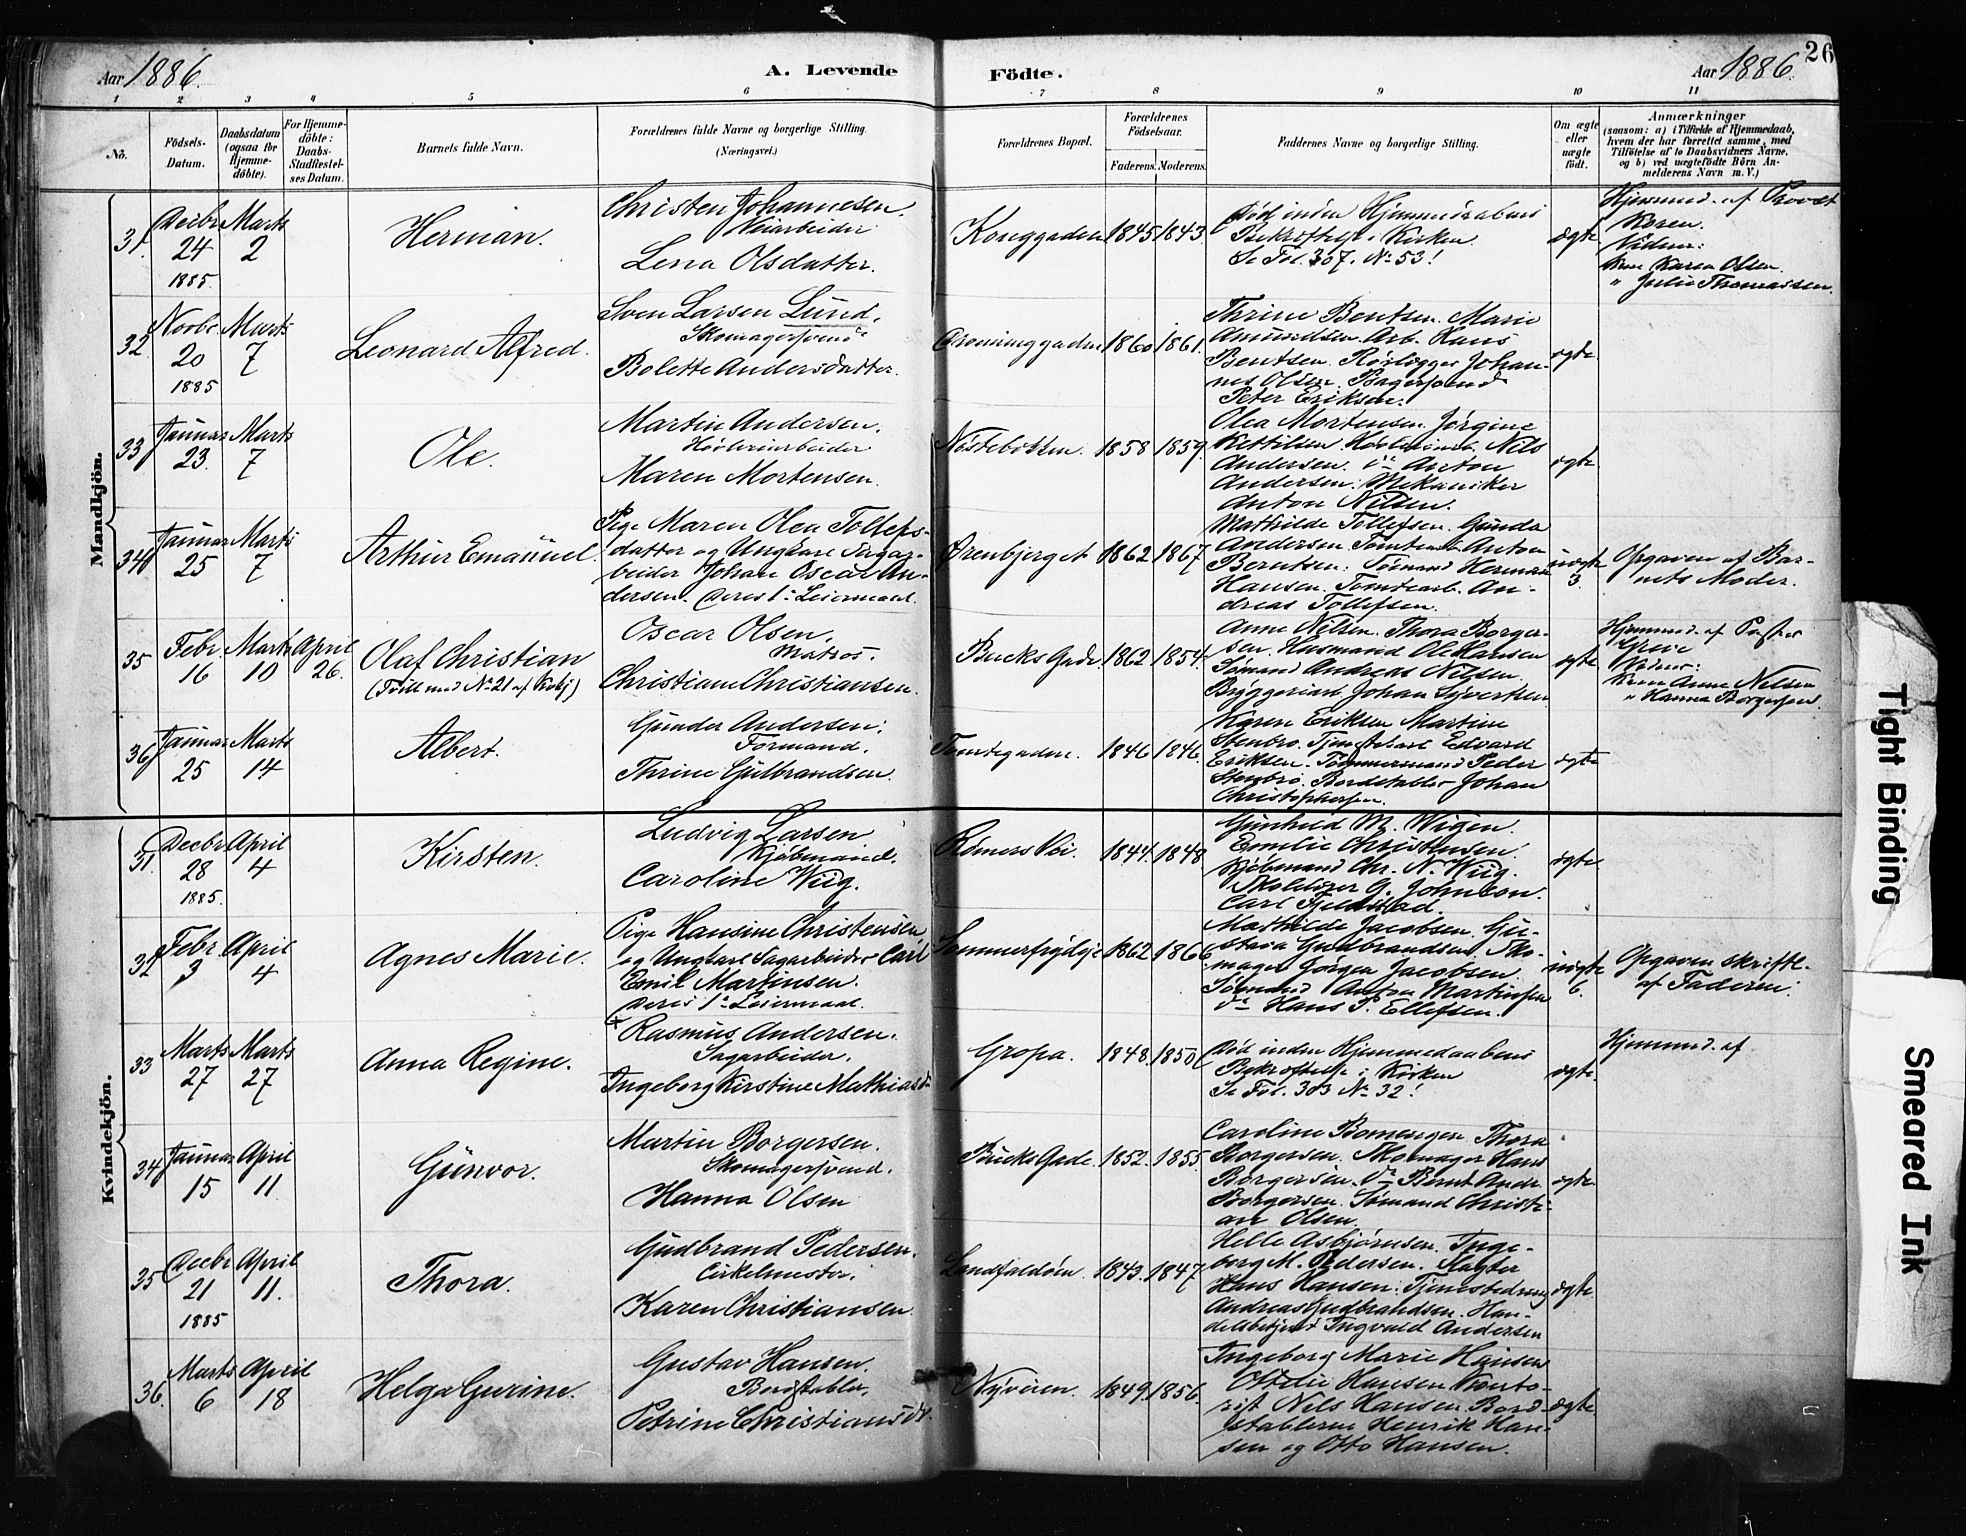 Aar 1886.
A. Levende Födte.
Aar 1886.
26
1 2 3 4 5 6 7 8 9 10 11
No.
Födsels-Datum.
Daabsdatum (ogsaa for Hjemme-döbte).
For Hjemme-döbte: Daabs-Stadfæstel-ses Datum.
Barnets fulde Navn.
Forældrenes fulde Navne og borgerlige Stilling.
(Næringsvei.)
Forældrenes Bopæl.
Forældrenes Födselsaar.
Faderens. Moderens.
Faddernes Navne og borgerlige Stilling.
Om ægte eller uægte födt.
Anmærkninger
(saasom: a) i Tilfælde af Hjemmedaab,
hvem der har forrettet samme, med
Tilföielse af to Daabsvidners Navne,
og b) ved uegtefödte Börn An-
melderens Navn m. V.)
Mandkjön.
31. Decbr 24 1885. Marts 2
Herman.
Christen Johannesen.
Veiarbeider
Lena Olsdatter.
Konggaden 1845 1843.
Död inden Hjemmedaabens
Bekræftelse i Kirken.
Se Fol. 367. No 53!
ægte
Hjemmed. af Provst
Koren.
Vidner:
Kone Karen Olsen.
" Julie Thomassen.
32. Novbr. 20 1885 Marts 7
Leonard Alfred.
Sven Larsen Lund.
Skomagersvend
Bolette Andersdatter.
Dronninggaden 1860 1861.
Thrine Bentsen. Marie
Amundsen. Arb. Hans
Bentsen. Rörlægger Johan-
nes Olsen. Bagersvend
Peter Eriksen.
ægte.
33. Januar 23. Marts 7
Ole.
Martin Andersen.
Hövleriarbeider
Maren Mortensen.
Nöstebotten. 1858 1859.
Olea Mortensen. Jörgine
Kettilsen. Hövleriarb. Nils
Andersen. do Anton
Andersen. Mekaniker
Anton Nilsen.
ægte.
34. Januar 25 Marts 7
Arthur Emanuel.
Pige Maren Olea Tollefs-
datter og Ungkarl Sagar-
beider Johan Oscar An-
dersen. Deres 1ste Leiermaal.
Ørenbjerget 1862 1867.
Mathilde Tollefsen. Gunda
Andersen. Tomtearb. Anton
Berntsen. Sömand Herman
Hansen. Tomtearb. An-
dreas Tollefsen.
uægte 3.
Opgaven af Bar-
nets Moder.
35 Febr. 16 Marts 10 April 26.
Olaf Christian
(Tvill. med No 21 af Kvkj.)
Oscar Olsen.
Matros.
Christiane Christiansen.
Bucks Gade. 1862. 1854.
Anne Nilsen. Thora Borger-
sen. Husmand Ole Hansen
Sömand Andreas Nilsen.
Bryggeriarb. Johan Syvertsen
ægte.
Hjemmed. af Pastor
Greve
Vidner:
Kone Anne Nilsen
" Hanna Borgersen.
36. Januar 25 Marts 14
Albert.
Gunder Andersen.
Formand.
Thrine Gulbrandsen.
Tomtegaden. 1846 1846.
Karen Eriksen Martine
Stenbro. Tjenestekarl Edvard
Eriksen. Tömmermand Peder
Stenbro. Bordstabler Johan
Christophersen.
ægte
Kvindekjön.
31. Decbr 28 1885. April 4
Kirsten.
Ludvig Larsen
Kjöbmand.
Caroline Wiig.
Römers Vei. 1844. 1848.
Gunhild M. Wigen.
Emilie Christensen.
Kjöbmand Chr. N. Wiig.
G. Johnson.
Carl Fjeldstad.
ægte.
32 Febr. 3 April 4
Agnes Marie.
Pige Hansine Christensen
og Ungkarl Sagarbeider Carl
Emil Martinsen.
Deres 1ste Leiermaal.
Sommerfrydlyk. 1862 1866
Mathilde Jacobsen. Gu-
stava Gudbrandsen. Sko-
mager Jörgen Jacobsen.
Sömand Anton Martinsen
do Hans P. Ellefsen.
uægte 6.
Opgaven skriftl.
af Faderen.
33 Marts 27 Marts 27
Anna Regine.
Rasmus Andersen.
Sagarbeider.
Ingeborg Kirstine Mathiasd.
Gropa. 1848. 1850.
Död inden Hjemmedaabens
Bekræftelse i Kirken
Se Fol. 303 No 32!
ægte.
Hjemmed. af
34 Januar 15 April 11.
Gunvor.
Martin Borgersen.
Skomagersvend.
Hanna Olsen
Bucks Gade. 1852. 1855.
Caroline Bomengen. Thora
Borgersen. Skomager Hans
Borgersen. do Bernt Andr.
Borgersen. Sömand Christi-
an Olsen.
ægte.
35 Decbr 21 1885 April 11.
Thora.
Gudbrand Pedersen.
Cirkelmester.
Karen Christiansen
Landfaldöen. 1843. 1847.
Helle Asbjörnsen. Inge-
borg M. Pedersen. Slagter
Hans Hansen. Tjenestedreng
Andreas Gudbrandsen. Han-
delsbetjent Ingvald Andersen
ægte.
36. Marts 6 April 18
Helga Gurine.
Gustav Hansen.
Bordstabler,
Petrine Christiansdr.
Nyveien. 1849. 1856.
Ingeborg Marie Hansen
Ottilie Hansen Konto-
rist Nils Hansen. Bord-
stablerne Henrik Han-
sen og Otto Hansen.
ægte
Tight Binding
Smeared Ink